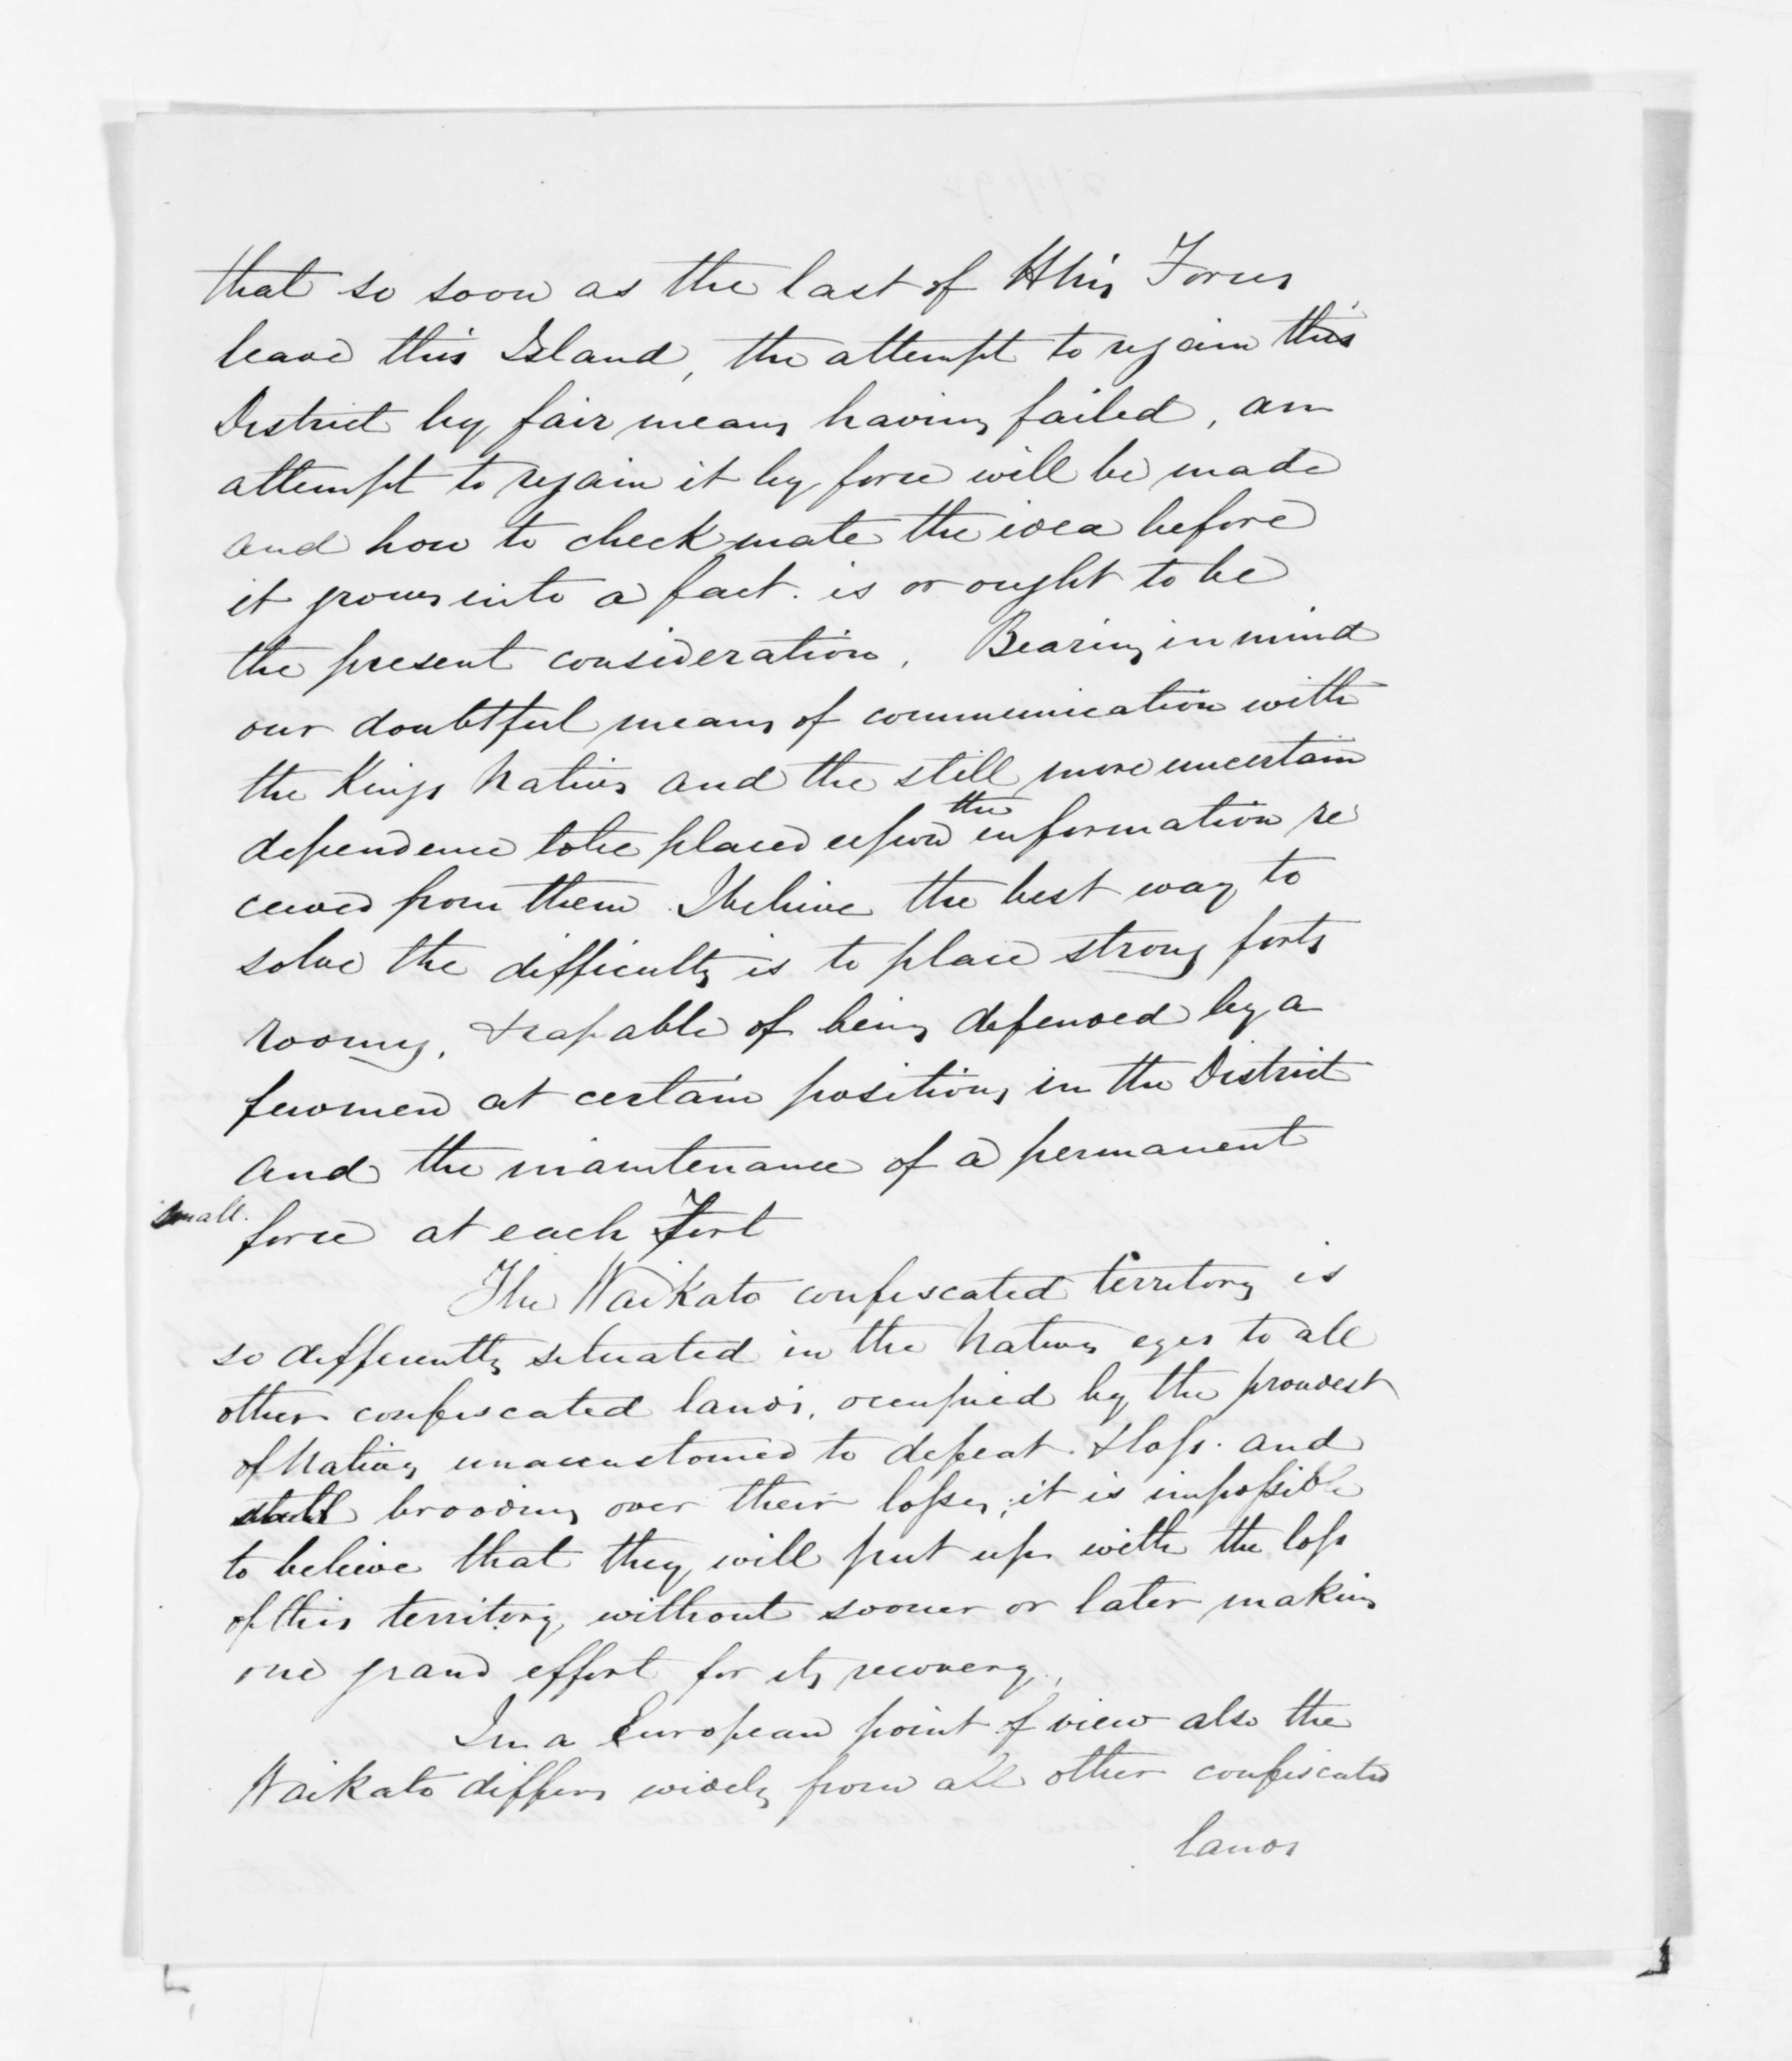 that so soon as the last of this Forces
leave this Island, the attempt to regain this
District by fair means having failed, an
attempt to regain it by force will be made
and how to checkmate the idea before
it grows into a fact. is or ought to be
the present consideration. Bearing in mind
our doubtful means of communication with
the Kings Natives and the still more uncertain
dependence to be placed upon the information re
ceived from them I believe the best way to
solve the difficulty is to place strong forts
roomy, & capable of being defended by a
few men at certain positions in the District
and the maintenance of a permanent
small force at each Fort
The Waikato confiscated territory is
so differently situated in the Natives eyes to all
other confiscated lands, occupied by the proudest
of Natives unaccustomed to defeat. & loss. and
still brooding over their losses; it is impossible
to believe that they will put up with the loss
of this territory, without sooner or later making
one grand effort for its recovery.
In a European point of view also the
Waikato differs widely from all other confiscated
lands